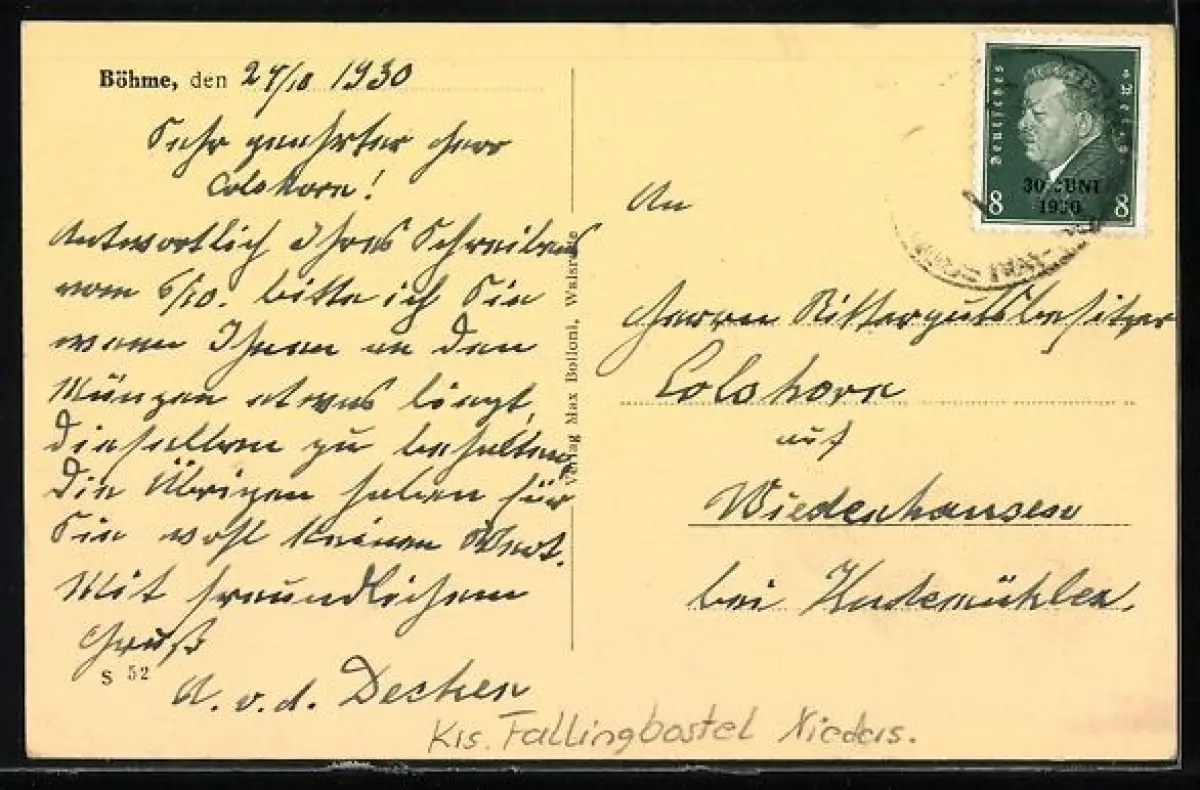 Böhme, den 24/10 1930
Sehr geehrter Herr
Colshorn!
Antwortlich Ihres Schreibens
vom 6/10. bitte ich Sie
wenn Ihnen an den
Münzen etwas liegt,
dieselben zu behalten,
die Übrigen haben für
Sie wohl keinen Wert.
Mit freundlichem
Gruß
A. v. d. Decken
S 52
Verlag Max Bolloni, Walsrode
Deutsches Reich
30 JUNI
1930
8 8
An
Herrn Rittergutsbesitzer
Colshorn
auf
Wiedenhausen
bei Hudemühlen.
Krs. Fallingbostel Nieders.